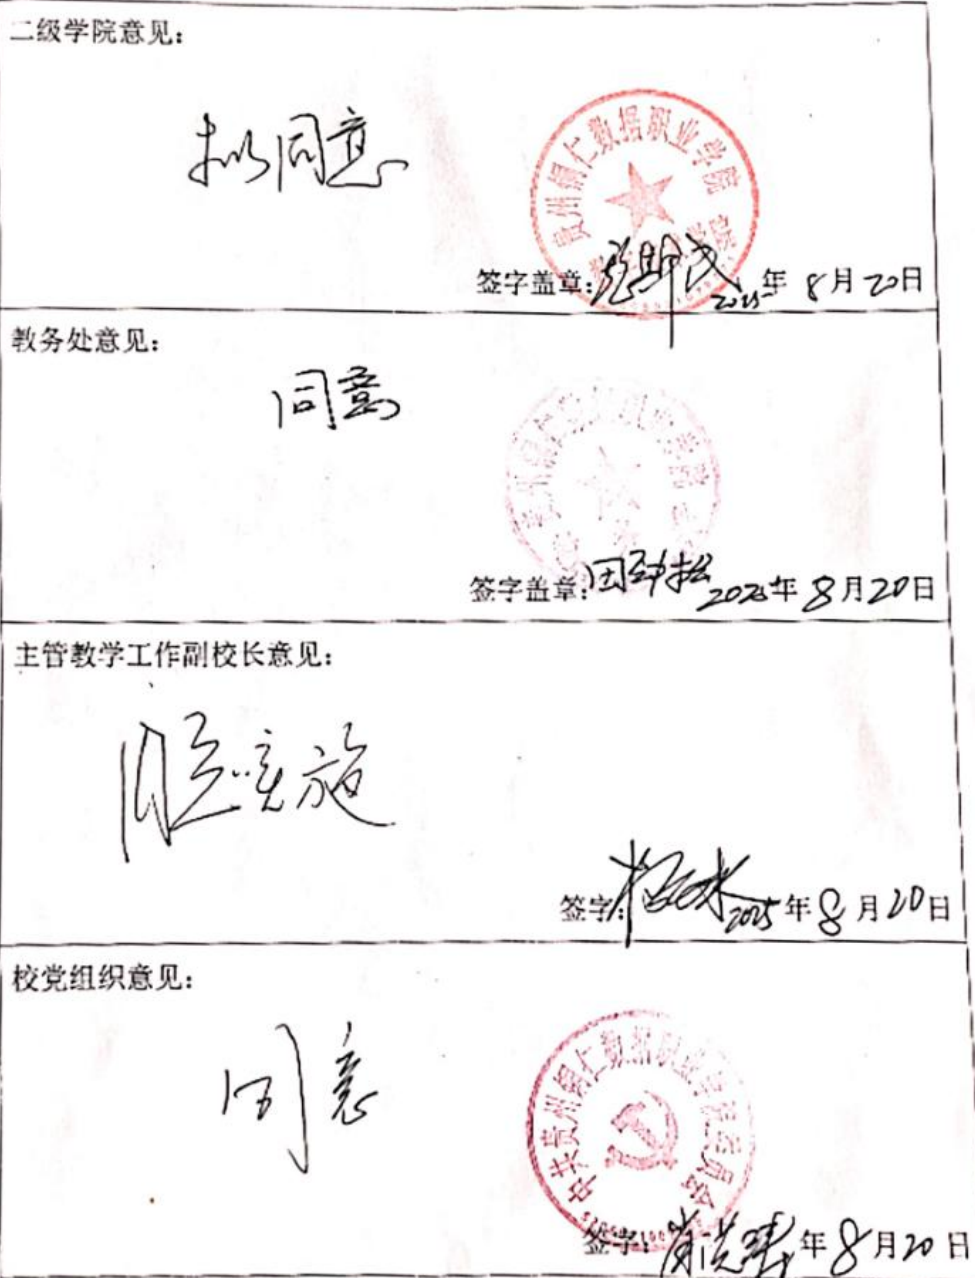 二级学院意见：
拟同意
贵州铜仁数据职业学院
签字盖章： 2025年 8月20日
教务处意见：
同意
签字盖章： 2025年 8月20日
主管教学工作副校长意见：
同意实施
签字： 2025年 8月20日
校党组织意见：
同意
中共贵州铜仁数据职业学院委员会
签字： 年 8月20日